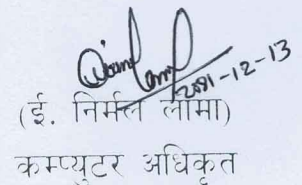 2081-12-13
(ई. निर्मल लामा)
कम्प्युटर अधिकृत